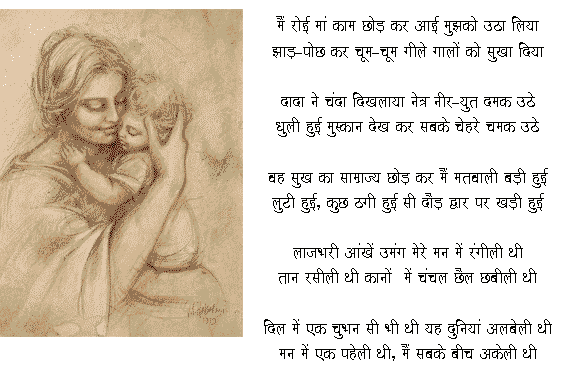 मैं रोई मां काम छोड़ कर आई मुझको उठा लिया
झाड़-पोछ कर चूम-चूम गीले गालों को सुखा दिया
दादा ने चंदा दिखलाया नेत्र नीर-युत दमक उठे
धुली हुई मुस्कान देख कर सबके चेहरे चमक उठे
वह सुख का साम्राज्य छोड़ कर मैं मतवाली बड़ी हुई
लुटी हुई, कुछ ठगी हुई सी दौड़ द्वार पर खड़ी हुई
लाजभरी आंखें उमंग मेरे मन में रंगीली थी
तान रसीली थी कानों में चंचल छैल छबीली थी
दिल में एक चुभन सी भी थी यह दुनियां अलबेली थी
मन में एक पहेली थी, मैं सबके बीच अकेली थी